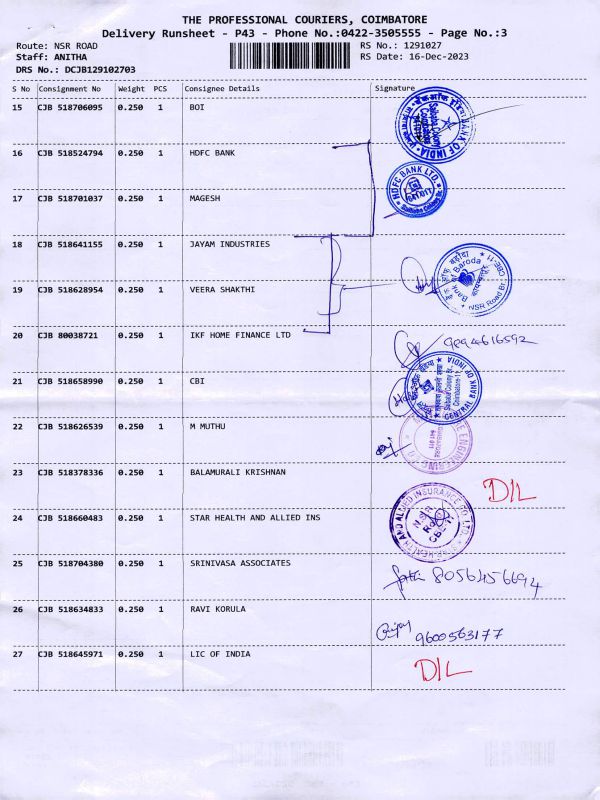 THE PROFESSIONAL COURIERS, COIMBATORE
Delivery Runsheet - P43 - Phone No.:0422-3505555 - Page No.:3
Route: NSR ROAD
RS No.: 1291027
Staff: ANITHA
RS Date: 16-Dec-2023
DRS No.: DCJB129102703
S No Consignment No Weight PCS Consignee Details Signature
15 CJB 518706095 0.250 1 BOI
BANK OF INDIA
16 CJB 518524794 0.250 1 HDFC BANK
HDFC BANK LTD.
17 CJB 518701037 0.250 1 MAGESH
18 CJB 518641155 0.250 1 JAYAM INDUSTRIES
Bank of Baroda
CBE-11
NSR Road Br.
19 CJB 518628954 0.250 1 VEERA SHAKTHI
20 CJB 80038721 0.250 1 IKF HOME FINANCE LTD
9894616592
21 CJB 518658990 0.250 1 CBI
CENTRAL BANK OF INDIA
Coimbatore-11
22 CJB 518626539 0.250 1 M MUTHU
23 CJB 518378336 0.250 1 BALAMURALI KRISHNAN
D/L
24 CJB 518660483 0.250 1 STAR HEALTH AND ALLIED INS
STAR HEALTH AND ALLIED INSURANCE CO. LTD.
25 CJB 518704380 0.250 1 SRINIVASA ASSOCIATES
8056456694
26 CJB 518634833 0.250 1 RAVI KORULA
9600563177
27 CJB 518645971 0.250 1 LIC OF INDIA
D/L